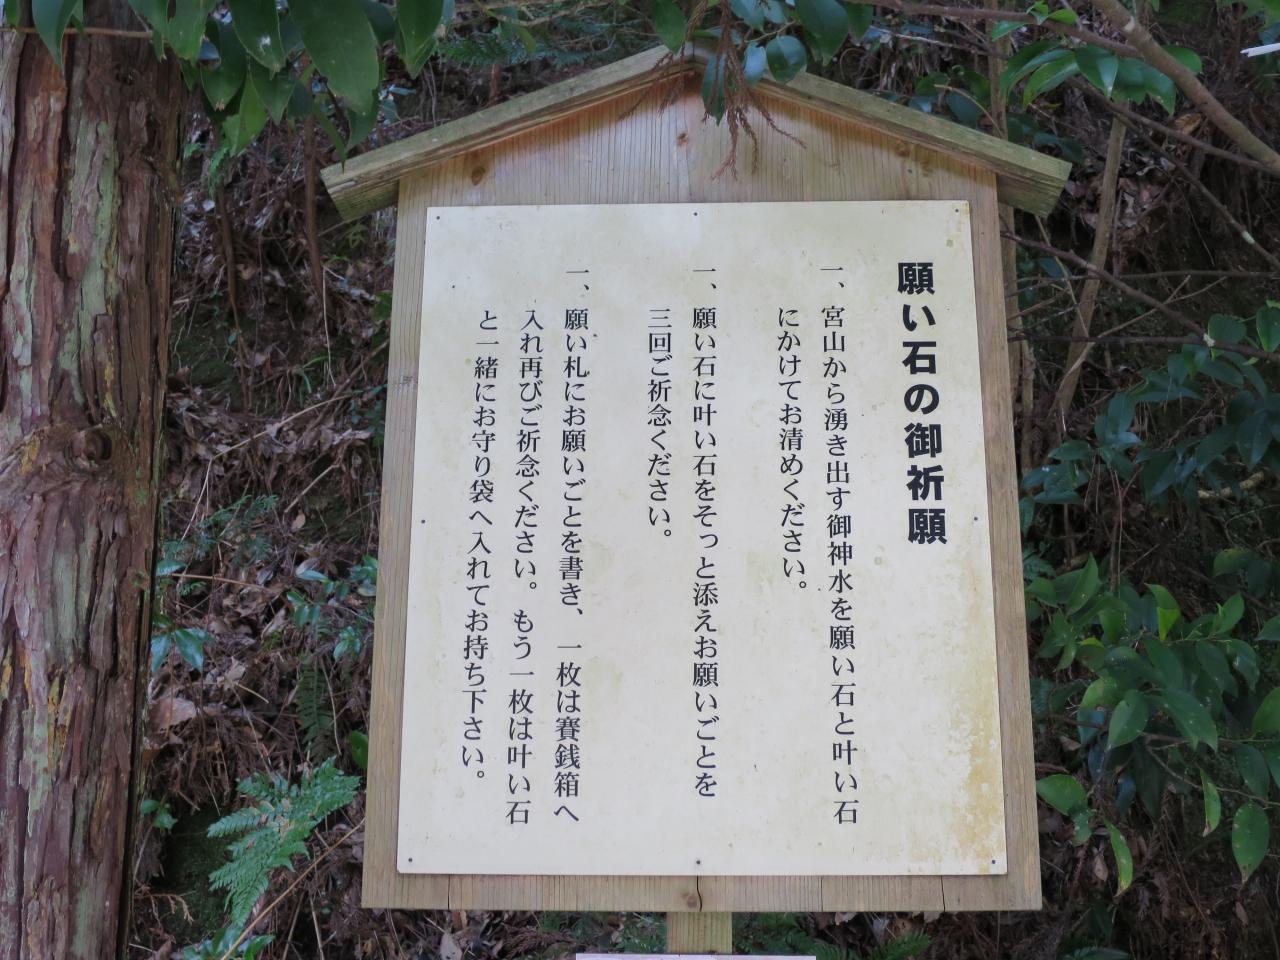 願い石の御祈願
一、宮山から湧き出す御神水を願い石と叶い石
にかけてお清めください。
一、願い石に叶い石をそっと添えお願いごとを
三回ご祈念ください。
一、願い札にお願いごとを書き、一枚は賽銭箱へ
入れ再びご祈念ください。もう一枚は叶い石
と一緒にお守り袋へ入れてお持ち下さい。